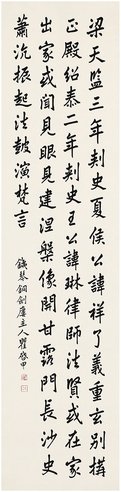 梁天監三年刺史夏侯公諱祥了義重玄別構
正殿紹泰二年刺史王公諱琳律師法賢或在家
出家或聞見眼見建涅槃像開甘露門長沙史
蕭沆振起法鼓演梵言
鐵琴銅劍廔主人瞿啓甲